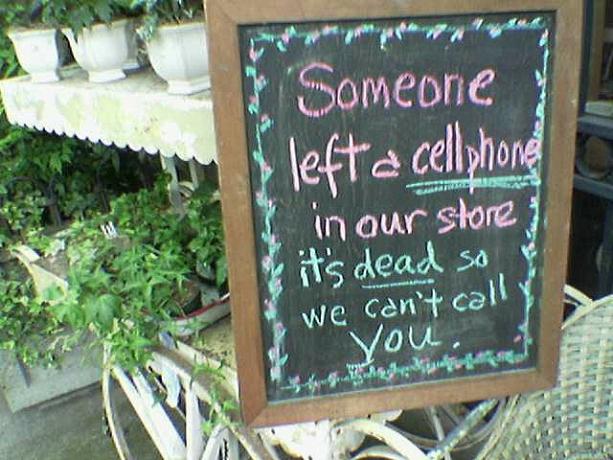 Someone
left a cellphone
in our store
it's dead so
we can't call
you.